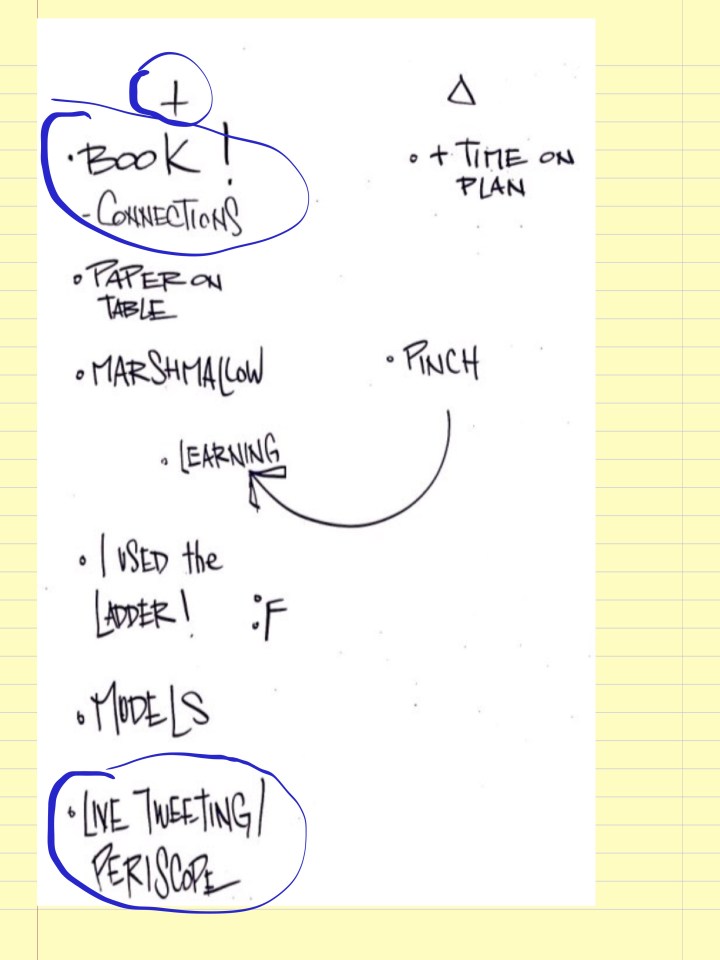 +
• BOOK!
- CONNECTIONS
• PAPER ON
TABLE
• MARSHMALLOW
• LEARNING
• I USED the
LADDER! :F
• MODELS
• LIVE TWEETING/
PERISCOPE
Δ
• + TIME ON
PLAN
• PINCH